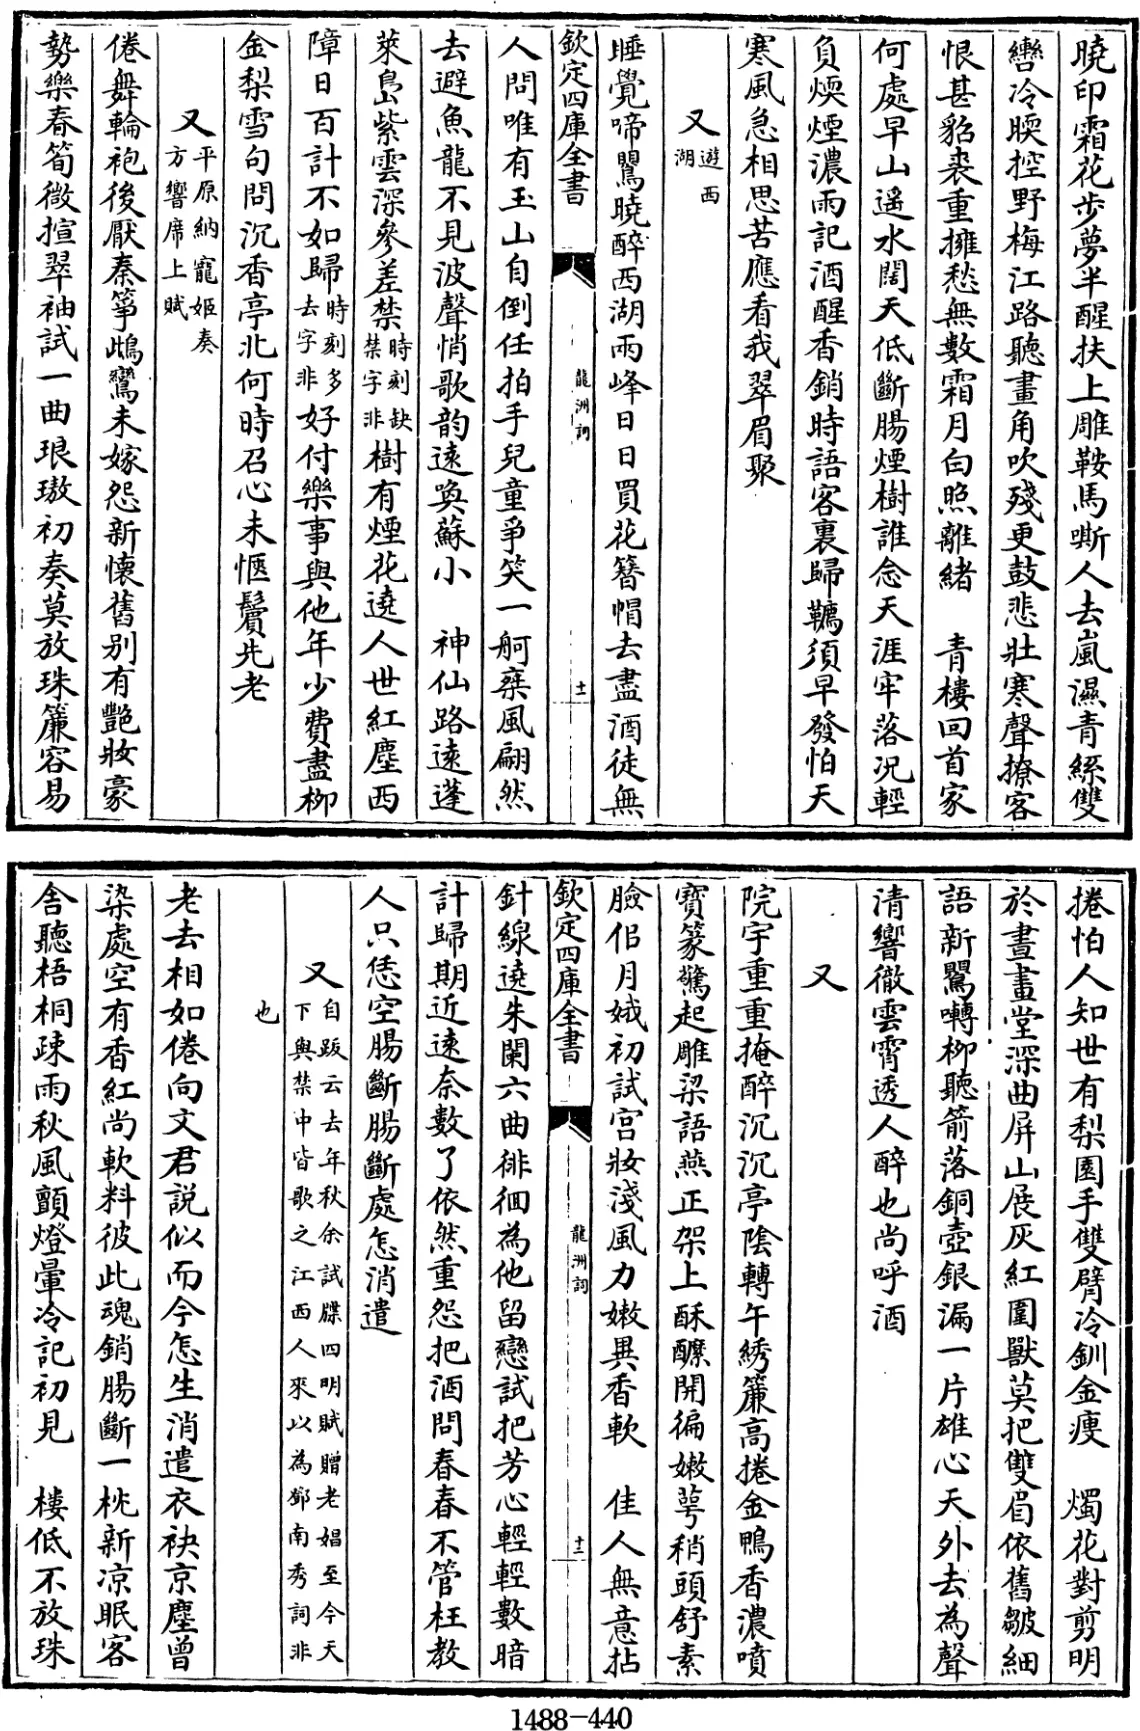 曉印霜花步夢半醒扶上雕鞍馬嘶人去嵐濕青絲雙
轡冷暖控野梅江路聽畫角吹殘更鼓悲壯寒聲撩客
恨甚貂裘重擁愁無數霜月白照離緒　青樓回首家
何處早山遥水闊天低斷腸煙樹誰念天涯牢落况輕
負煗煙濃雨記酒醒香銷時語客裏歸韉須早發怕天
寒風急相思苦應看我翠眉聚
又遊西湖
睡覺啼鸎曉醉西湖兩峰日日買花簪帽去盡酒徒無
欽定四庫全書
龍洲詞
十一
人問唯有玉山自倒任拍手兒童爭笑一舸乗風翩然
去避魚龍不見波聲悄歌韵遠喚蘇小　神仙路遠蓬
萊島紫雲深參差禁時刻缺禁字非樹有煙花遶人世紅塵西
障日百計不如歸時刻多去字非好付樂事與他年少費盡柳
金梨雪句問沉香亭北何時召心未愜鬢先老
又平原納寵姬奏方響席上賦
倦舞輪袍後厭秦箏鴆鸞未嫁怨新懷舊别有艷妝豪
勢樂春筍微揎翠袖試一曲琅璈初奏莫放珠簾容易
捲怕人知世有梨園手雙臂冷釧金瘦　燭花對剪明
於晝畫堂深曲屏山展灰紅圍獸莫把雙眉依舊皺細
語新鸎囀柳聽箭落銅壺銀漏一片雄心天外去為聲
清響徹雲霄透人醉也尚呼酒
又
院宇重重掩醉沉沉亭陰轉午綉簾高捲金鴨香濃噴
寶篆驚起雕梁語燕正架上酥醾開徧嫩萼梢頭舒素
臉佀月娥初試宫妝淺風力嫩異香軟　佳人無意拈
欽定四庫全書
龍洲詞
十二
針線遶朱闌六曲徘徊為他留戀試把芳心輕輕數暗
計歸期近遠奈數了依然重怨把酒問春春不管枉教
人只恁空腸斷腸斷處怎消遣
又自跋云去年秋余試牒四明賦贈老娼至今天下與禁中皆歌之江西人來以為鄧南秀詞非也
老去相如倦向文君說似而今怎生消遣衣袂京塵曾
染處空有香紅尚軟料彼此魂銷腸斷一枕新凉眠客
舍聽梧桐疎雨秋風顫燈暈冷記初見　樓低不放珠
1488－440